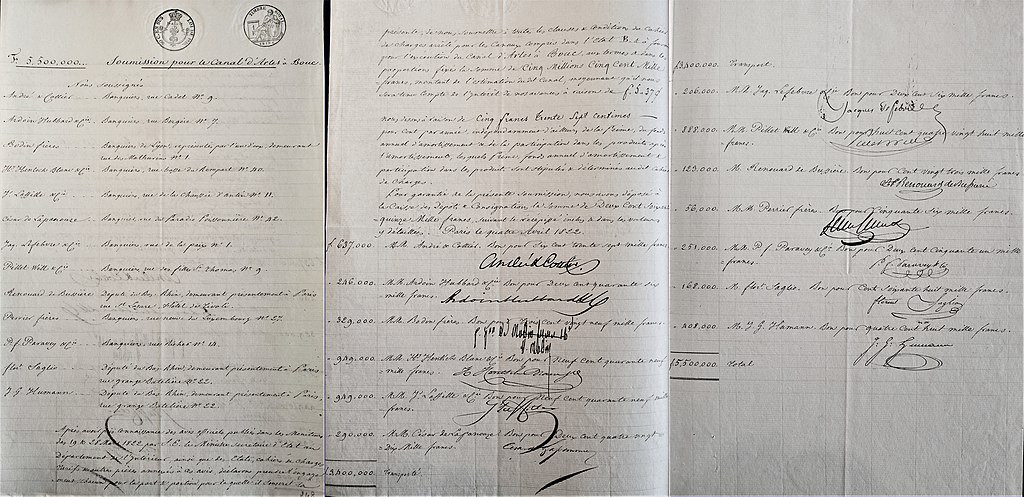 F. 5,500,000... Soumission pour le Canal d'Arles à Bouc.
Nous soussignés
André & Cottier... Banquiers, rue Cadet N° 9.
Ardoin Hubbard & Cie... Banquiers, rue Bergère N° 9.
Bodin frères... Banquiers de Lyon, représentés par demeurant
rue des Mathurins N° 1.
Hri Hentsch Blanc & Cie... Banquiers, rue N° 20.
J. Laffitte & Cie... Banquiers, rue de la Chaussée d'Antin N° 11.
César de Lapanouze... Banquier, rue du Faubourg Poissonnière N°
Jaq. Lefebvre & Cie... Banquiers rue de la paix N° 1.
Pillet Will & Cie... Banquiers rue des filles St. Thomas, N° 9
Renouard de Bussière... Député du Bas Rhin, demeurant présentement à Paris
rue St. Lazare, Hôtel de Tivoli
Perrier frères... Banquiers, rue neuve du Luxembourg N° 27.
P. f. Paravey & Cie... Banquiers, rue Richer N° 14.
flent Saglio... Député du Bas Rhin, demeurant présentement à Paris
rue grange Batelière N° 22.
J. G. Humann... Député du Bas Rhin, demeurant présentement à Paris,
rue grange Batelière N° 22.
Après avoir pris connaissance des avis officiels publiés dans les Moniteurs
des 19 & 28 Mars 1822 par S. E. le Ministre Secrétaire d'Etat au
Département de l'Intérieur, ainsi que des Etats, cahiers de Charges,
Tarifs & autres pièces annexées à ces avis, déclarons prendre l'engage
ment chacun pour la part & portion pour laquelle il souscrit la
présente, de nous soumettre à toutes les clauses & conditions du Cahier
de charges arrêté pour les Canaux compris dans l'état B. & à fournir
pour l'exécution du Canal d'Arles à Bouc, aux termes & dans les
proportions fixées la somme de Cinq Millions Cinq Cent Mille
francs, montant de l'estimation du dit Canal, moyennant qu'il nous
sera tenu compte de l'Interêt de nos avances à raison de f. 5.37%
Nous disons à raison de Cinq francs trente Sept Centimes
pour Cent par année, indépendamment d'ailleurs de la prime, du fonds
annuel d'amortissement & de la participation dans les produits après
l'amortissement, les quels prime, fonds annuel d'amortissement &
participation dans les produits sont stipulés & déterminés au dit cahier
de Charges.
Pour garantie de la présente Soumission, nous avons déposé à
la Caisse des Dépôts & Consignations la Somme de Deux Cent Soixante
quinze Mille francs, suivant le récépissé inclus & dans les valeurs
y détaillées. Paris le quatre Avril 1822.
f 637,000. M.M. André & Cottier. Bon pour Six cent trente sept mille francs.
André & Cottier
246,000 M.M. Ardoin Hubbard & Cie Bon pour Deux cent quarante six
mille francs. Ardoin Hubbard & Cie
329,000 M.M. Bodin frères. Bon pour Trois Cent vingt neuf mille francs.
949,000. M.M. Hri Hentsch Blanc & Cie Bon pour Neuf Cent quarante neuf
mille francs. H. Hentsch Blanc & Cie
949,000. M.M. J. Laffitte & Cie Bon pour Neuf Cent quarante neuf mille
francs. J. Laffitte
290,000 M. César de Lapanouze Bon pour Deux Cent quatre vingt
Dix Mille francs. César Lapanouze
f 3,400,000 Transporté.
f 3,400,000 Transport.
206,000. M.M. Jaq. Lefebvre & Cie Bon pour Deux Cent Six mille francs.
Jacques Lefebvre
888,000. M.M. Pillet Will & Cie Bon pour huit cent quatre vingt huit mille
francs. Pillet Will
123,000 M. Renouard de Bussière. Bon pour Cent vingt trois mille francs.
Renouard de Bussierre
56,000. M.M. Perrier frères. Bon pour Cinquante Six mille francs.
251,000 M.M. P. f. Paravey & Cie Bon pour Deux Cent Cinquante un mille
francs. P. f. Paravey & Cie
168,000 M. flent Saglio. Bon pour Cent Soixante huit mille francs.
florent Saglio
408,000 M. J. G. Humann. Bon pour quatre Cent huit mille francs.
J. G. Humann
f 5,500,000 Total